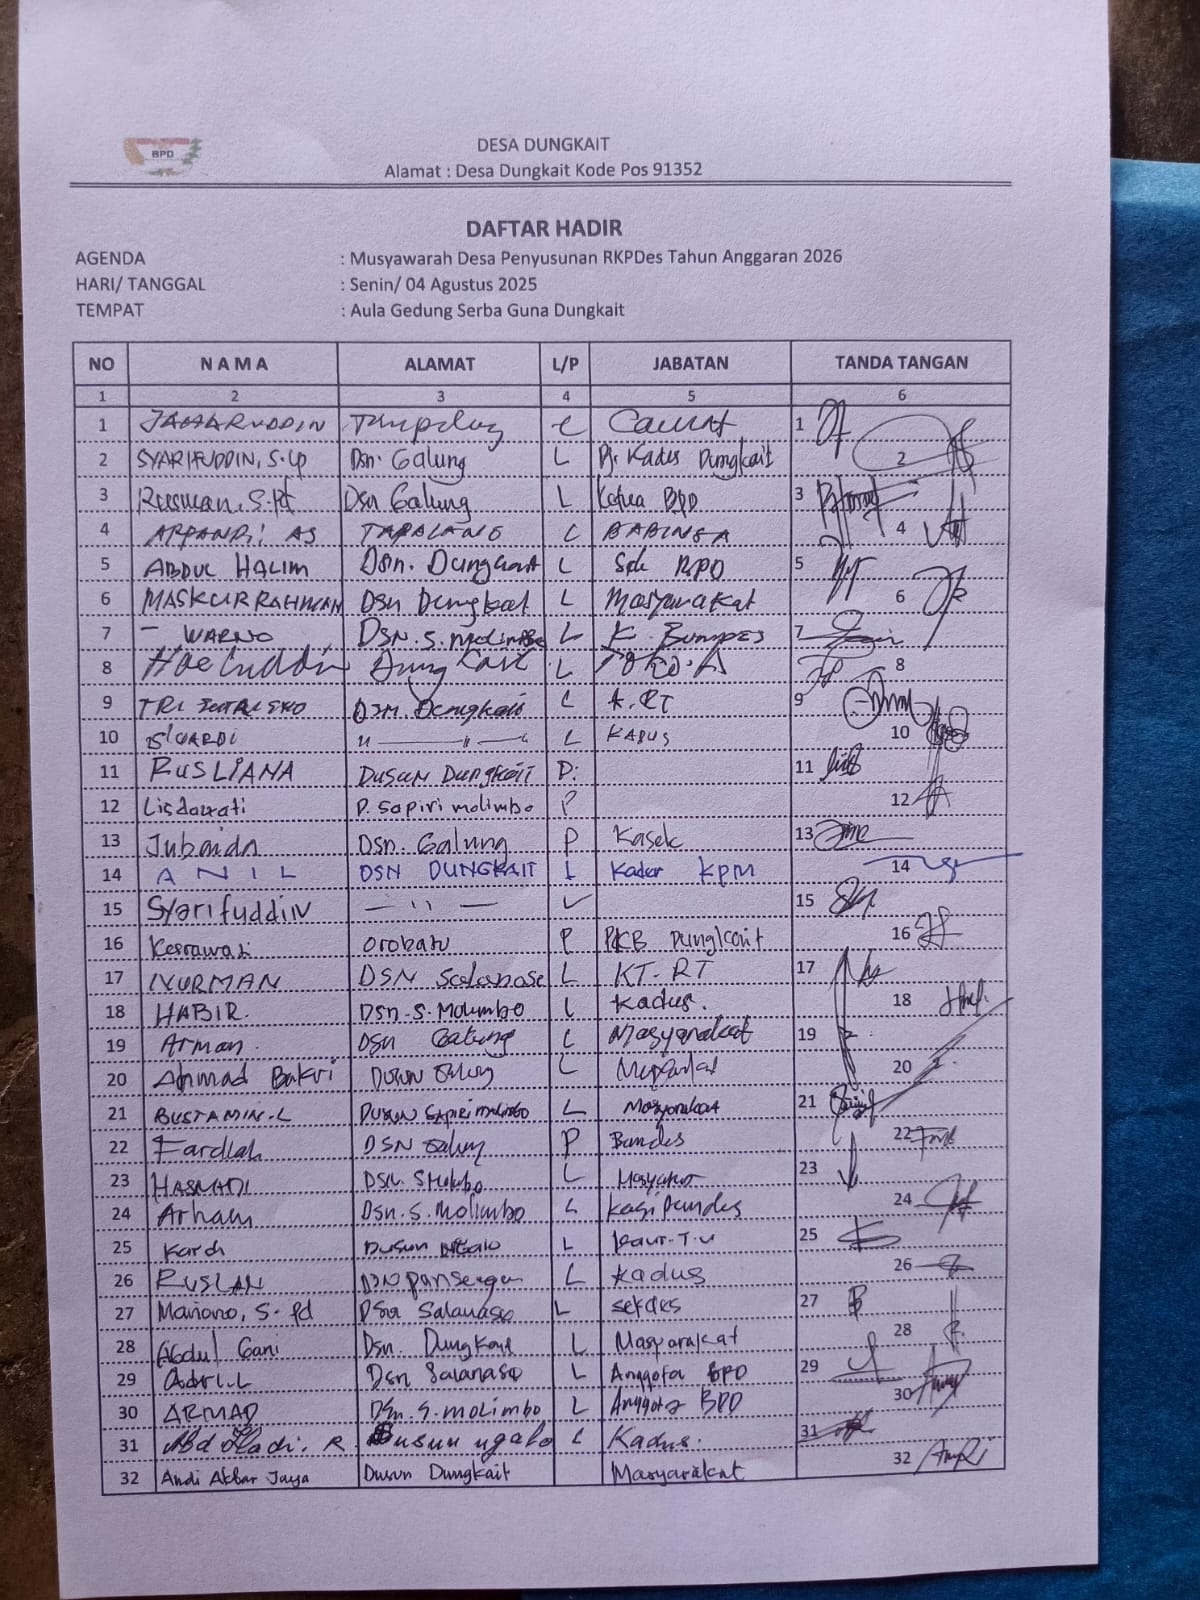 BPD
DESA DUNGKAIT
Alamat : Desa Dungkait Kode Pos 91352
DAFTAR HADIR
AGENDA : Musyawarah Desa Penyusunan RKPDes Tahun Anggaran 2026
HARI/ TANGGAL : Senin/ 04 Agustus 2025
TEMPAT : Aula Gedung Serba Guna Dungkait
NO N A M A ALAMAT L/P JABATAN TANDA TANGAN
1 2 3 4 5 6
1 JAHARUDDIN Camat 1
2 SYARIFUDDIN, S.Ip Dsn. Galung L Pj. Kades Dungkait 2
3 Rusman, S.Pd Dsn Galung L Ketua BPD 3
4 ARPANDI AS TAPALANG L BABINSA 4
5 ABDUL HALIM Dsn. Dungkait L BPD 5
6 MASKUR RAHMAN Dsn Dungkait L Masyarakat 6
7 - WARNO DSN. S. Molimbo L K. Bumdes 7
8 Dungkait L 8
9 TRI Dsn. Dungkait L K.RT 9
10 SUARDI 〃 — 〃 — 〃 L KADUS 10
11 RUSLIANA Dusun Dungkait P: 11
12 Lisdawati D. Sapiri molimbo P 12
13 Jubaida Dsn. Galung P Kasek 13
14 ANIL DSN DUNGKAIT L Kader KPM 14
15 Syarifuddin — 〃 — 15
16 Kesrawati Orobatu P PKB Dungkait 16
17 NURMAN DSN Salanaso L KT. RT 17
18 HABIR. Dsn. S. Molimbo L Kadus. 18
19 Arman. Dsn Galung L Masyarakat 19
20 Ahmad Bakri Dusun Galung L 20
21 BUSTAMIN.L Dusun Sapiri molimbo L Masyarakat 21
22 Fardiah DSN Galung P Bundes 22
23 HASMADI L 23
24 Arham Dsn. S. Molimbo L kasi pemdes 24
25 Kardi Dusun Ngalo L kaur. T.U 25
26 RUSLAN L Kadus 26
27 Mariono, S.Pd Dsn Salanaso L sekdes 27
28 Abdul Gani Dsn. Dungkait L Masyarakat 28
29 Dsn Salanaso L Anggota BPD 29
30 ARMAD Dsn. S. molimbo L Anggota BPD 30
31 Abd Hadi. R Dusun ngalo L Kadus. 31
32 Andi Akbar Jaya Dusun Dungkait Masyarakat 32